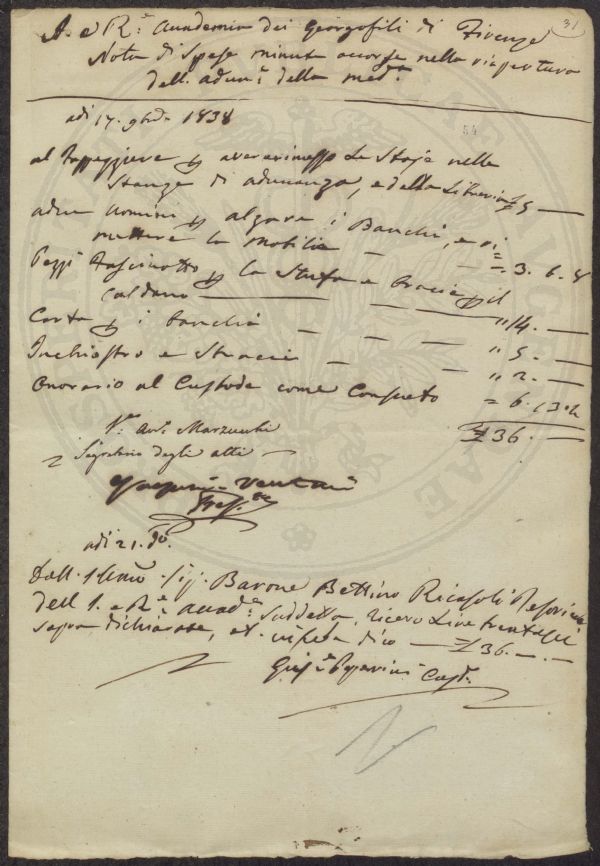 31
A. e R.ᵉ Accademia dei Georgofili di Firenze
Nota di Spese minute occorse nella riapertura
dell. adun.ᵉ della med.ᵃ
54
adì 17. 9bre 1838
al Tappezziere p averrimesso Le Stoje nelle
Stanze di adunanza, e della Libreria £ 5 —
adue Uomini p alzare i Banchi, e ri
mettere la mobilia — — = 3. 6. 8
Pezzi Fascinotto p la Stufa e Bracie p il
Caldano — " 14. —
Carta p i banchi — — — " 5. —
Inchiostro e Stracci — — " 2. —
Onorario al Custode come Consueto = 6. 13. 4
£ 36. —
V.ᵒ Ant.ᵒ Marzucchi
Segretario degli atti
Presᵗᵉ
adì 21. dᵒ.
Dall. Illmo. Sig. Barone Bettino Ricasoli Tesoriere
dell I. e R.ᵉ Accad.ᵃ Suddetta, ricevo Lire trentasei
sopra dichiarate, et. in fede dico — £ 36. — —
Cust.ᵉ